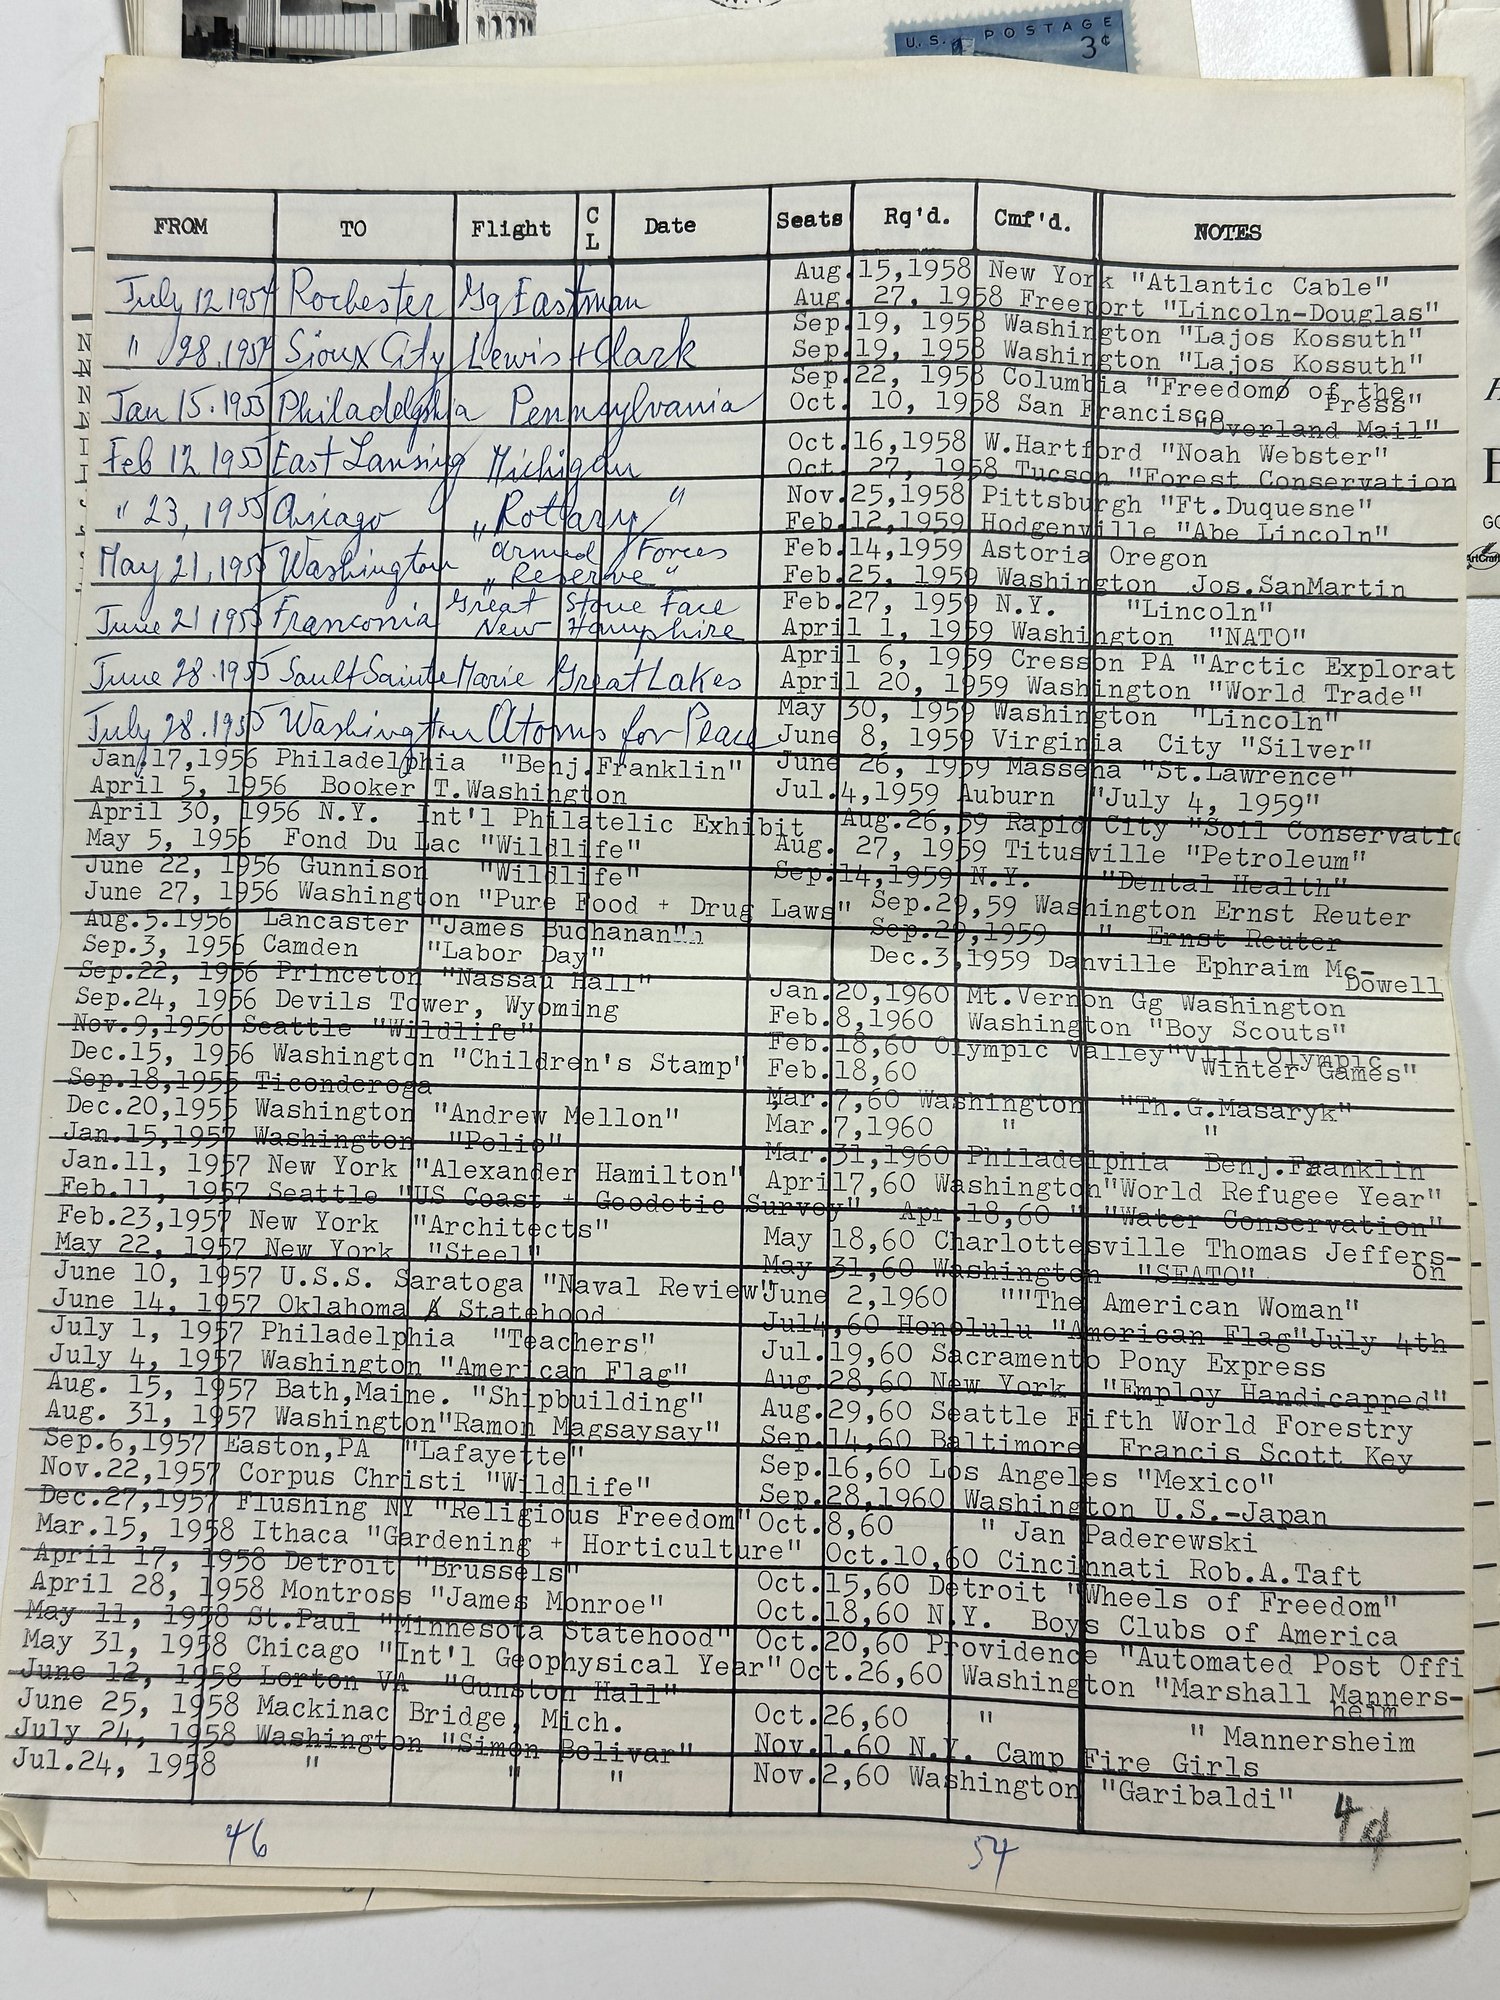 U.S. POSTAGE
3¢
FROM TO Flight CL Date Seats Rq'd. Cmf'd. NOTES
July 12 1954 Rochester Gg Eastman
" 28.1954 Sioux City Lewis + Clark
Jan 15.1955 Philadelphia Pennsylvania
Feb 12 1955 East Lansing Michigan
" 23, 1955 Chicago "Rottary"
May 21, 1955 Washington Armed Forces
"Reserve"
June 21 1955 Franconia Great Stone Face
New Hampshire
June 28.1955 Sault Sainte Marie Great Lakes
July 28.1955 Washington Atoms for Peace
Jan.17,1956 Philadelphia "Benj.Franklin"
April 5, 1956 Booker T.Washington
April 30, 1956 N.Y. Int'l Philatelic Exhibit
May 5, 1956 Fond Du Lac "Wildlife"
June 22, 1956 Gunnison "Wildlife"
June 27, 1956 Washington "Pure Food + Drug Laws"
Aug.5.1956 Lancaster "James Buchanan"
Sep.3, 1956 Camden "Labor Day"
Sep.22, 1956 Princeton "Nassau Hall"
Sep.24, 1956 Devils Tower, Wyoming
Nov.9,1956 Seattle "Wildlife"
Dec.15, 1956 Washington "Children's Stamp"
Sep.18,1955 Ticonderoga
Dec.20,1955 Washington "Andrew Mellon"
Jan.15,1957 Washington "Polio"
Jan.11, 1957 New York "Alexander Hamilton"
Feb.11, 1957 Seattle "US Coast + Geodetic Survey"
Feb.23,1957 New York "Architects"
May 22, 1957 New York "Steel"
June 10, 1957 U.S.S. Saratoga "Naval Review"
June 14, 1957 Oklahoma Statehood
July 1, 1957 Philadelphia "Teachers"
July 4, 1957 Washington "American Flag"
Aug. 15, 1957 Bath,Maine. "Shipbuilding"
Aug. 31, 1957 Washington"Ramon Magsaysay"
Sep.6,1957 Easton,PA "Lafayette"
Nov.22,1957 Corpus Christi "Wildlife"
Dec.27,1957 Flushing NY "Religious Freedom"
Mar.15, 1958 Ithaca "Gardening + Horticulture"
April 17, 1958 Detroit "Brussels"
April 28, 1958 Montross "James Monroe"
May 11, 1958 St.Paul "Minnesota Statehood"
May 31, 1958 Chicago "Int'l Geophysical Year"
June 12, 1958 Lorton VA "Gunston Hall"
June 25, 1958 Mackinac Bridge, Mich.
July 24, 1958 Washington "Simon Bolivar"
Jul.24, 1958 " " "
46
Aug.15,1958 New York "Atlantic Cable"
Aug. 27, 1958 Freeport "Lincoln-Douglas"
Sep.19, 1958 Washington "Lajos Kossuth"
Sep.19, 1958 Washington "Lajos Kossuth"
Sep.22, 1958 Columbia "Freedom of the
Press"
Oct. 10, 1958 San Francisco
"Overland Mail"
Oct.16,1958 W.Hartford "Noah Webster"
Oct. 27, 1958 Tucson "Forest Conservation
Nov.25,1958 Pittsburgh "Ft.Duquesne"
Feb.12,1959 Hodgenville "Abe Lincoln"
Feb.14,1959 Astoria Oregon
Feb.25, 1959 Washington Jos.SanMartin
Feb.27, 1959 N.Y. "Lincoln"
April 1, 1959 Washington "NATO"
April 6, 1959 Cresson PA "Arctic Explorat
April 20, 1959 Washington "World Trade"
May 30, 1959 Washington "Lincoln"
June 8, 1959 Virginia City "Silver"
June 26, 1959 Massena "St.Lawrence"
Jul.4,1959 Auburn "July 4, 1959"
Aug.26,59 Rapid City "Soil Conservatio
Aug. 27, 1959 Titusville "Petroleum"
Sep.14,1959 N.Y. "Dental Health"
Sep.29,59 Washington Ernst Reuter
Sep.29,1959 " Ernst Reuter
Dec.3,1959 Danville Ephraim Mc-
Dowell
Jan.20,1960 Mt.Vernon Gg Washington
Feb.8,1960 Washington "Boy Scouts"
Feb.18,60 Olympic Valley"VIII Olympic
Winter Games"
Feb.18,60
Mar.7,60 Washington "Th.G.Masaryk"
Mar.7,1960 " "
Mar.31,1960 Philadelphia Benj.Franklin
April7,60 Washington"World Refugee Year"
Apr.18,60 " "Water Conservation"
May 18,60 Charlottesville Thomas Jeffers-
on
May 31,60 Washington "SEATO"
June 2,1960 ""The American Woman"
Jul4,60 Honolulu "American Flag"July 4th
Jul.19,60 Sacramento Pony Express
Aug.28,60 New York "Employ Handicapped"
Aug.29,60 Seattle Fifth World Forestry
Sep.14,60 Baltimore Francis Scott Key
Sep.16,60 Los Angeles "Mexico"
Sep.28,1960 Washington U.S.-Japan
Oct.8,60 " Jan Paderewski
Oct.10,60 Cincinnati Rob.A.Taft
Oct.15,60 Detroit "Wheels of Freedom"
Oct.18,60 N.Y. Boys Clubs of America
Oct.20,60 Providence "Automated Post Offi
Oct.26,60 Washington "Marshall Manners-
heim
Oct.26,60 " " Mannersheim
Nov.1.60 N.Y. Camp Fire Girls
Nov.2,60 Washington "Garibaldi"
54